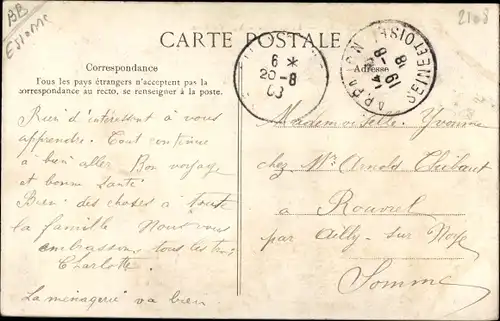 BB
Essonne
2108
CARTE POSTALE
Correspondance
Tous les pays étrangers n'acceptent pas la
correspondance au recto, se renseigner à la poste.
Adresse
6 *
20-8
03
ARPAJON
19-8
SEINE ET OISE
Rien d'intéressant à vous
apprendre. Tout continue
à bien aller Bon voyage
et bonne santé
Bien des choses à toute
la famille Nous vous
embrassons tous les
Charlotte.
La ménagerie va bien
Mademoiselle Yvonne
chez Mr Arnold Thibaut
à Rouvrel
par Ailly-sur Noye
Somme